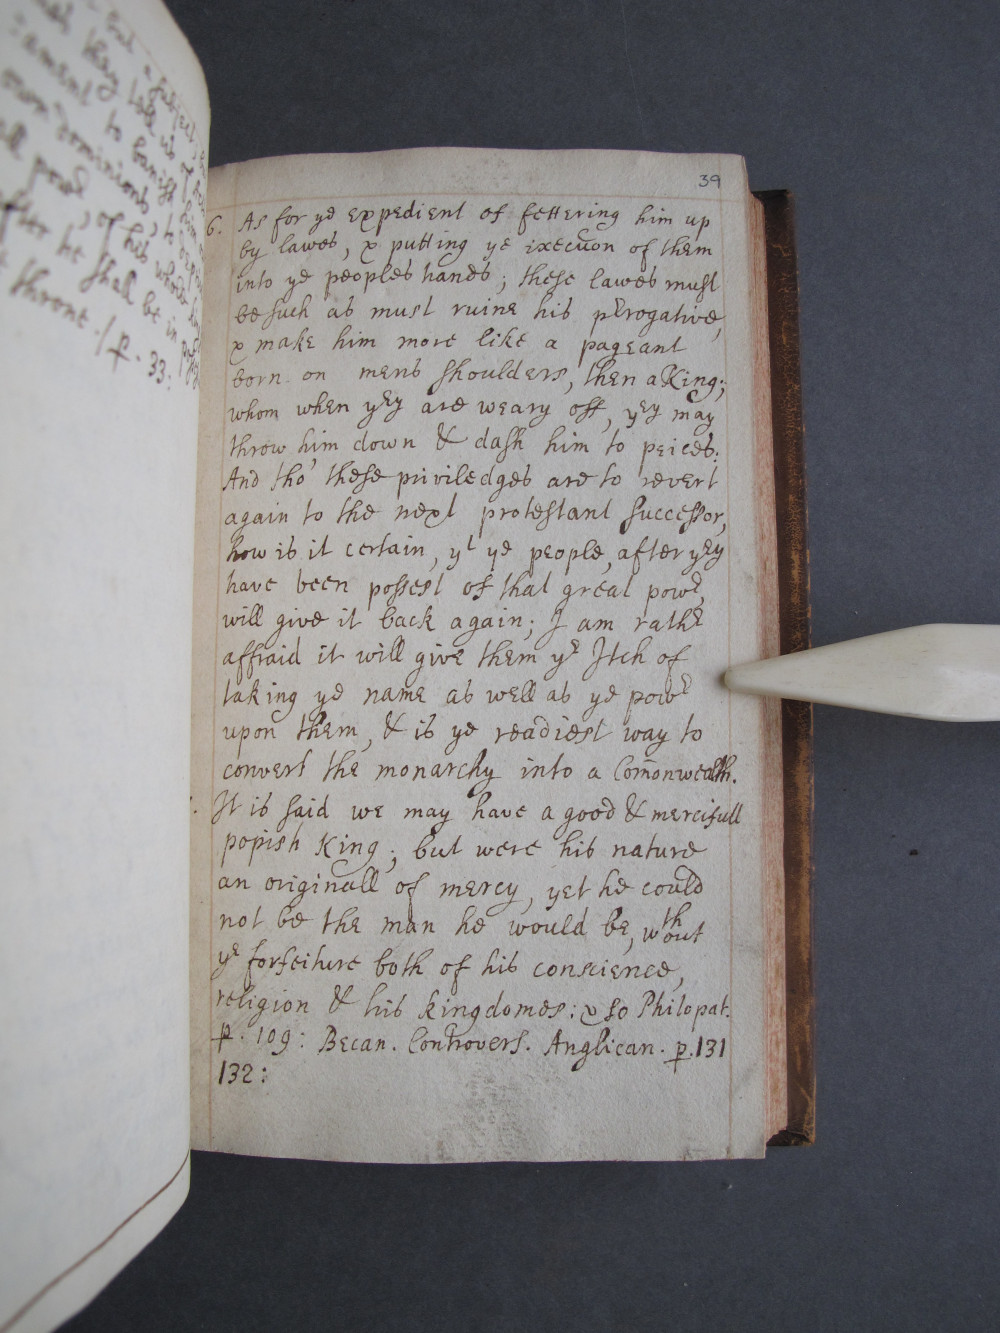 39
6. As for ye expedient of fettering him up
by lawes, & putting ye execution of them
into ye peoples hands; these lawes must
be such as must ruine his prrogative,
& make him more like a pageant
born on mens shoulders, then a King;
whom when yey are weary off, yey may
throw him down & dash him to peices.
And tho' these priviledges are to revert
again to the next protestant successor,
how is it certain, yt ye people, after yey
have been possest of that great powr,
will give it back again; I am rathr
affraid it will give them ye Itch of
taking ye name as well as ye powr
upon them, & is ye readiest way to
convert the monarchy into a Com̄onwealth.
It is said we may have a good & mercifull
popish King; but were his nature
an originall of mercy, yet he could
not be the man he would be, wthout
ye forfeiture both of his conscience,
religion & his kingdomes: & so Philopat.
p. 109: Becan. Controvers. Anglican. p. 131
132:
they tell us of
to banish him
own dominions, to
powr, of his whole
after he shall be in
throne./ p. 33: